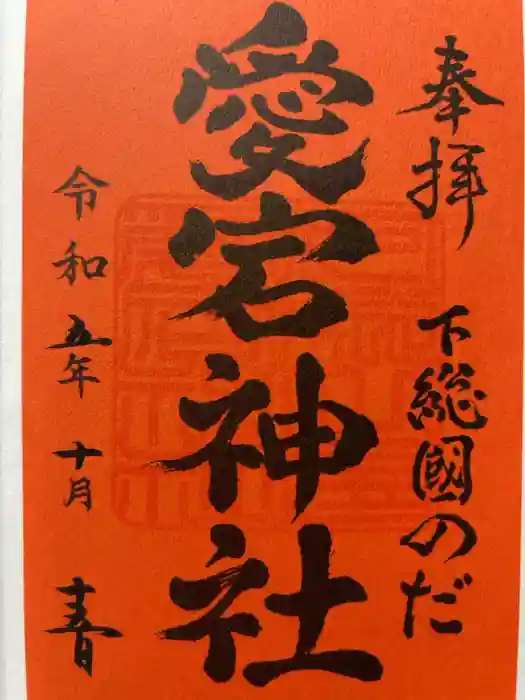 奉拝
下総國のだ
愛宕神社
令和五年十月吉日